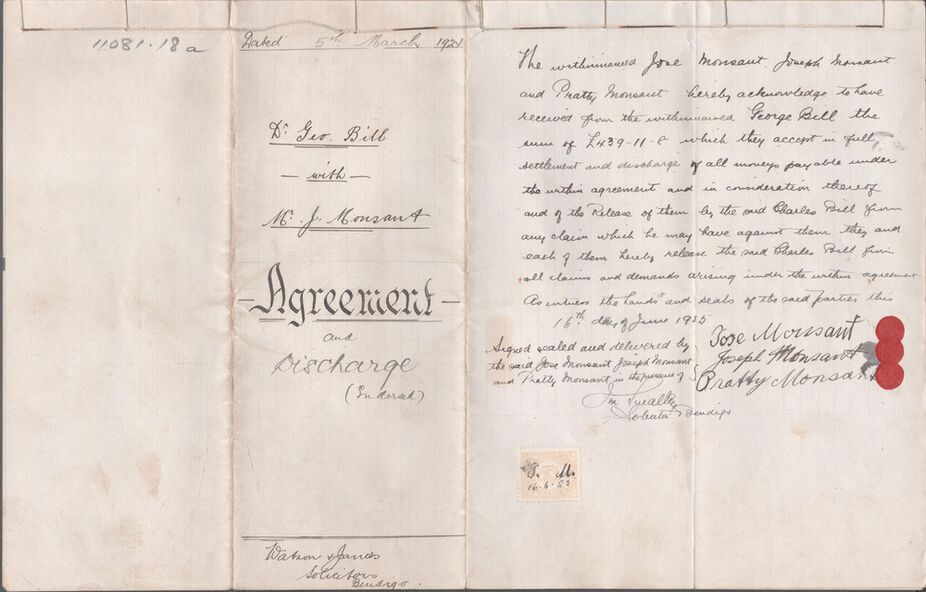 11081.18a
Dated 5th March 1921
Dr Geo. Bill
— with —
Mr. J. Monsant
— Agreement —
and
Discharge
(Endorsed)
Watson & James
Solicitors
Bendigo.
The withinnamed Jose Monsant Joseph Monsant
and Pratty Monsant hereby acknowledge to have
received from the withinnamed George Bill the
sum of £439-11-8 which they accept in full
settlement and discharge of all moneys payable under
the within agreement and in consideration thereof
and of the Release of them by the said Charles Bill from
any claim which he may have against them they and
each of them hereby release the said Charles Bill from
all claims and demands arising under the within agreement
As witness the hands and seals of the said parties this
16th day of June 1925
Signed sealed and delivered by
the said Jose Monsant Joseph Monsant
and Pratty Monsant in the presence of
Jose Monsant
Joseph Monsant
Pratty Monsant
Solicitor Bendigo
J. M.
16.6.25